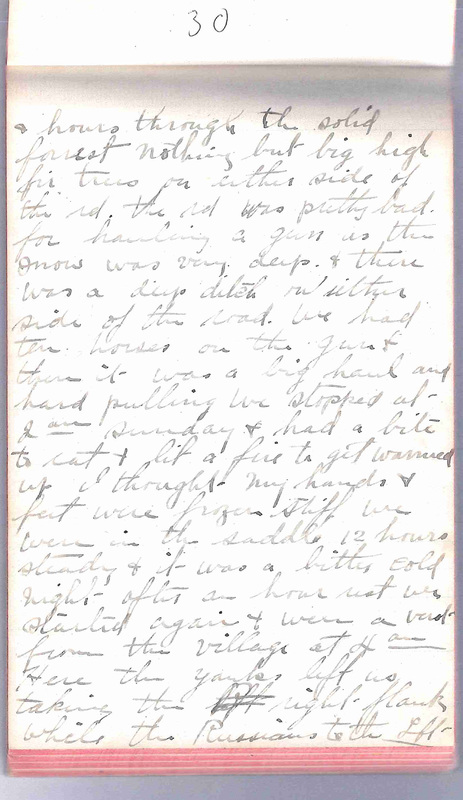 30
& hours through the solid
forrest nothing but big high
fir trees on either side of
the rd. the rd was pretty bad.
for hauling a gun as the
snow was very deep. & there
was a deep ditch on either
side of the road. We had
ten horses on the gun &
then it was a big haul and
hard pulling we stopped at
2 am Sunday & had a bite
to eat & lit a fire to get warmed
up I thought my hands &
feet were frozen stiff we
were in the saddle 12 hours
steady & it was a bitter cold
night after an hour rest we
started again & were a verst
from the village at 4 am
Here the yanks left us
taking the right flank
while the Russians took left